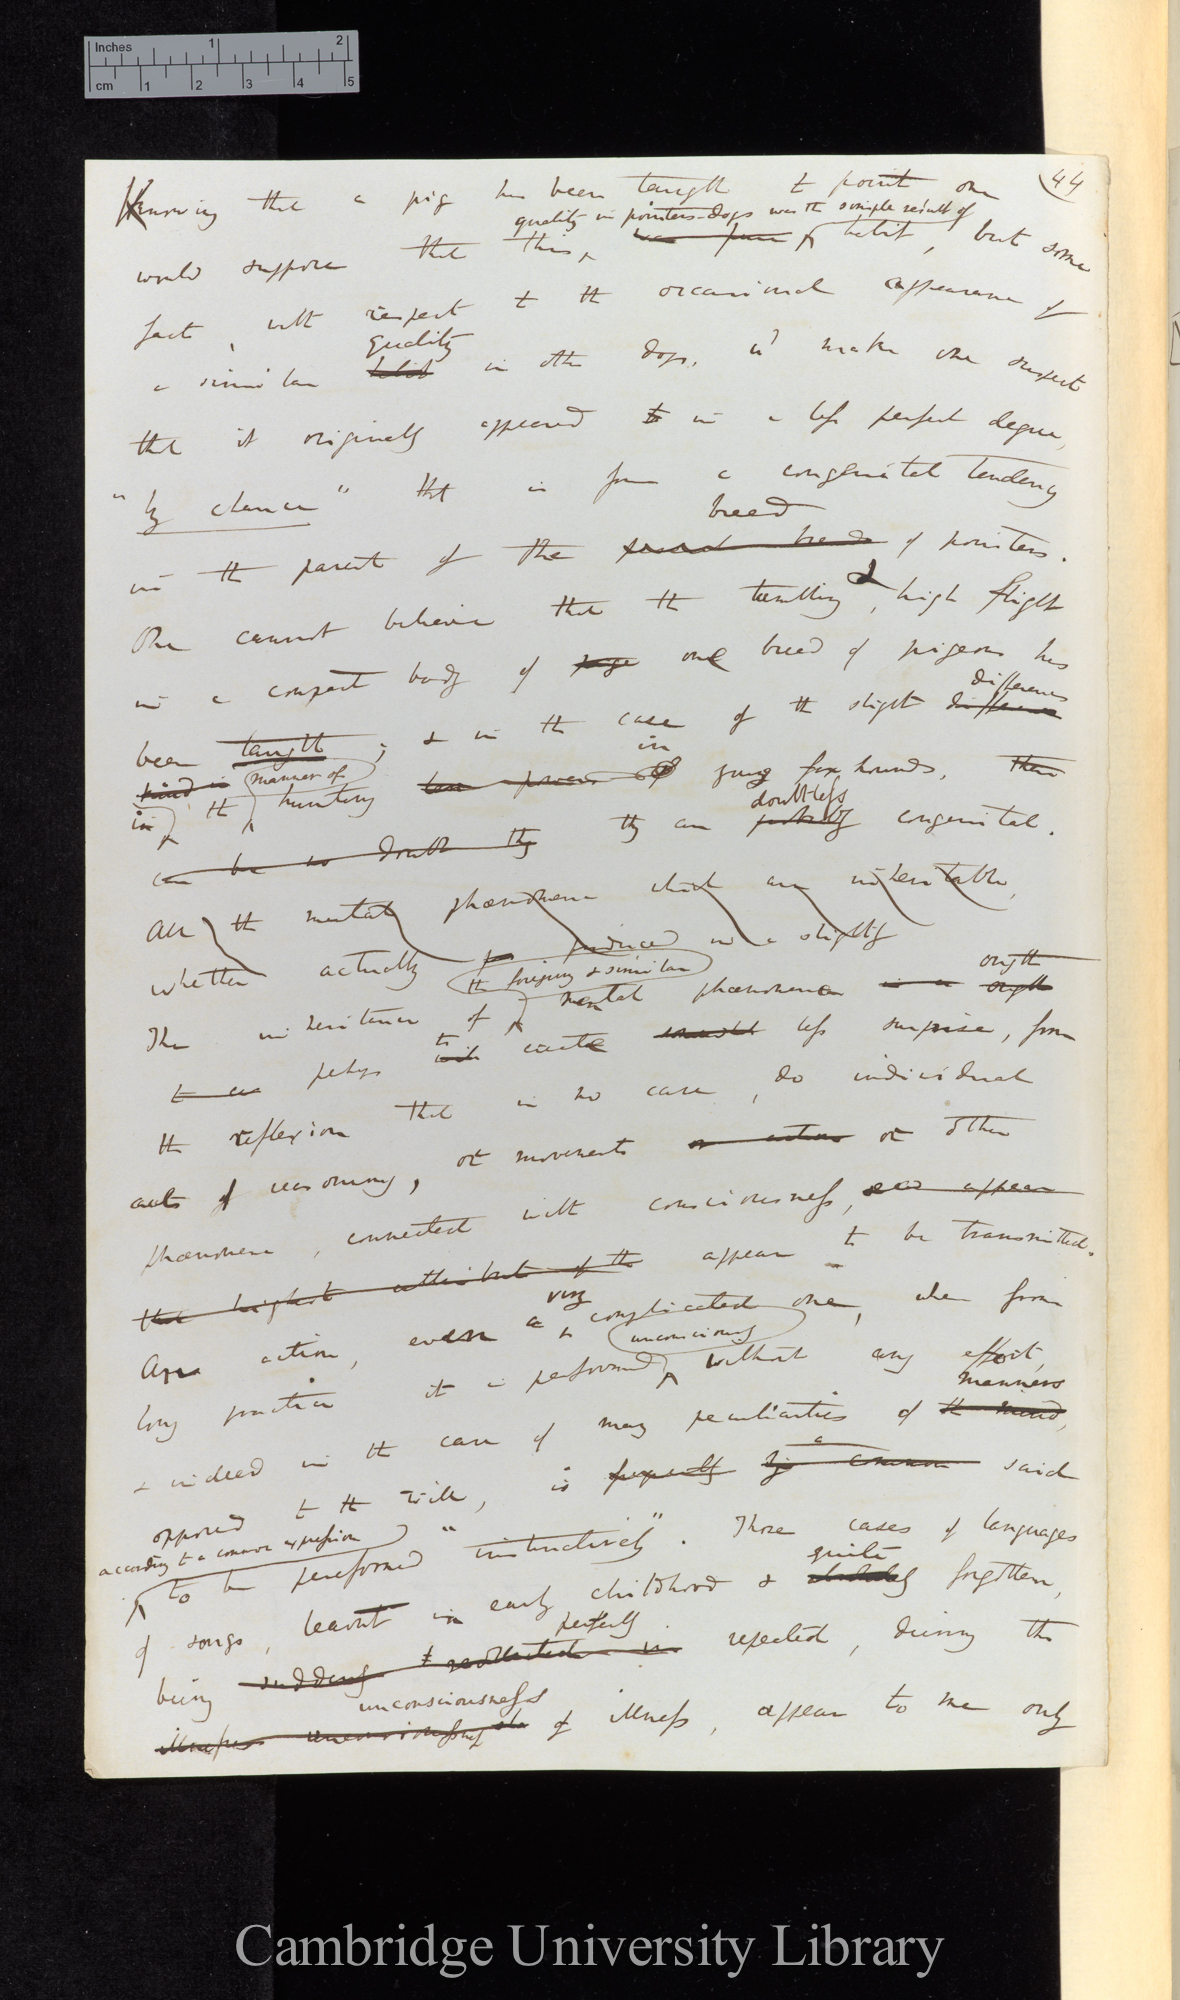 Inches 1 2
cm 1 2 3 4 5
44
Knowing that a pig has been taught to point one
quality in pointers-dogs was the simple result of
would suppose that this, was pure habit, but some
fact, with respect to the occasional appearance of
quality
a similar habit in other dogs, w^d make one suspect
that it originally appeared to in a less perfect degree,
"by chance" that is from a congenital tendency
breed
in the parent of the breeds of pointers.
One cannot believe that the tumbling & high flight
in a compact body of one breed of pigeons has
differences
been taught; & in the case of the slight difference
in
kind in manner of
in the hunting powers of young fox hounds, there
doubtless
can be no doubt they they are probably congenital.
All the mental phænomena which are inheritable,
whether actually produced in a slightly
the foregoing & similar
ought
The inheritance of mental phænomena ought
to
perhaps with excite should less surprise, from
the reflexion that in no case, do individual
acts of reasoning, or movements or actions or other
phænomena, connected with consciousness, appear
the highest attribute of the appear to be transmitted.
very
An action, even a complicated one, when from
unconsciously
long practice it is performed without any effort,
manners
& indeed in the case of many peculiarities of the mind,
a
opposed to the will, is frequently by common said
according to a common expression
to be performed "instinctively". Those cases of languages
quite
of songs, learnt in early childhood & absolutely forgotten,
perfectly
being suddenly recollected in repeated, during the
unconsciousness
of illness, appear to me only
Cambridge University Library